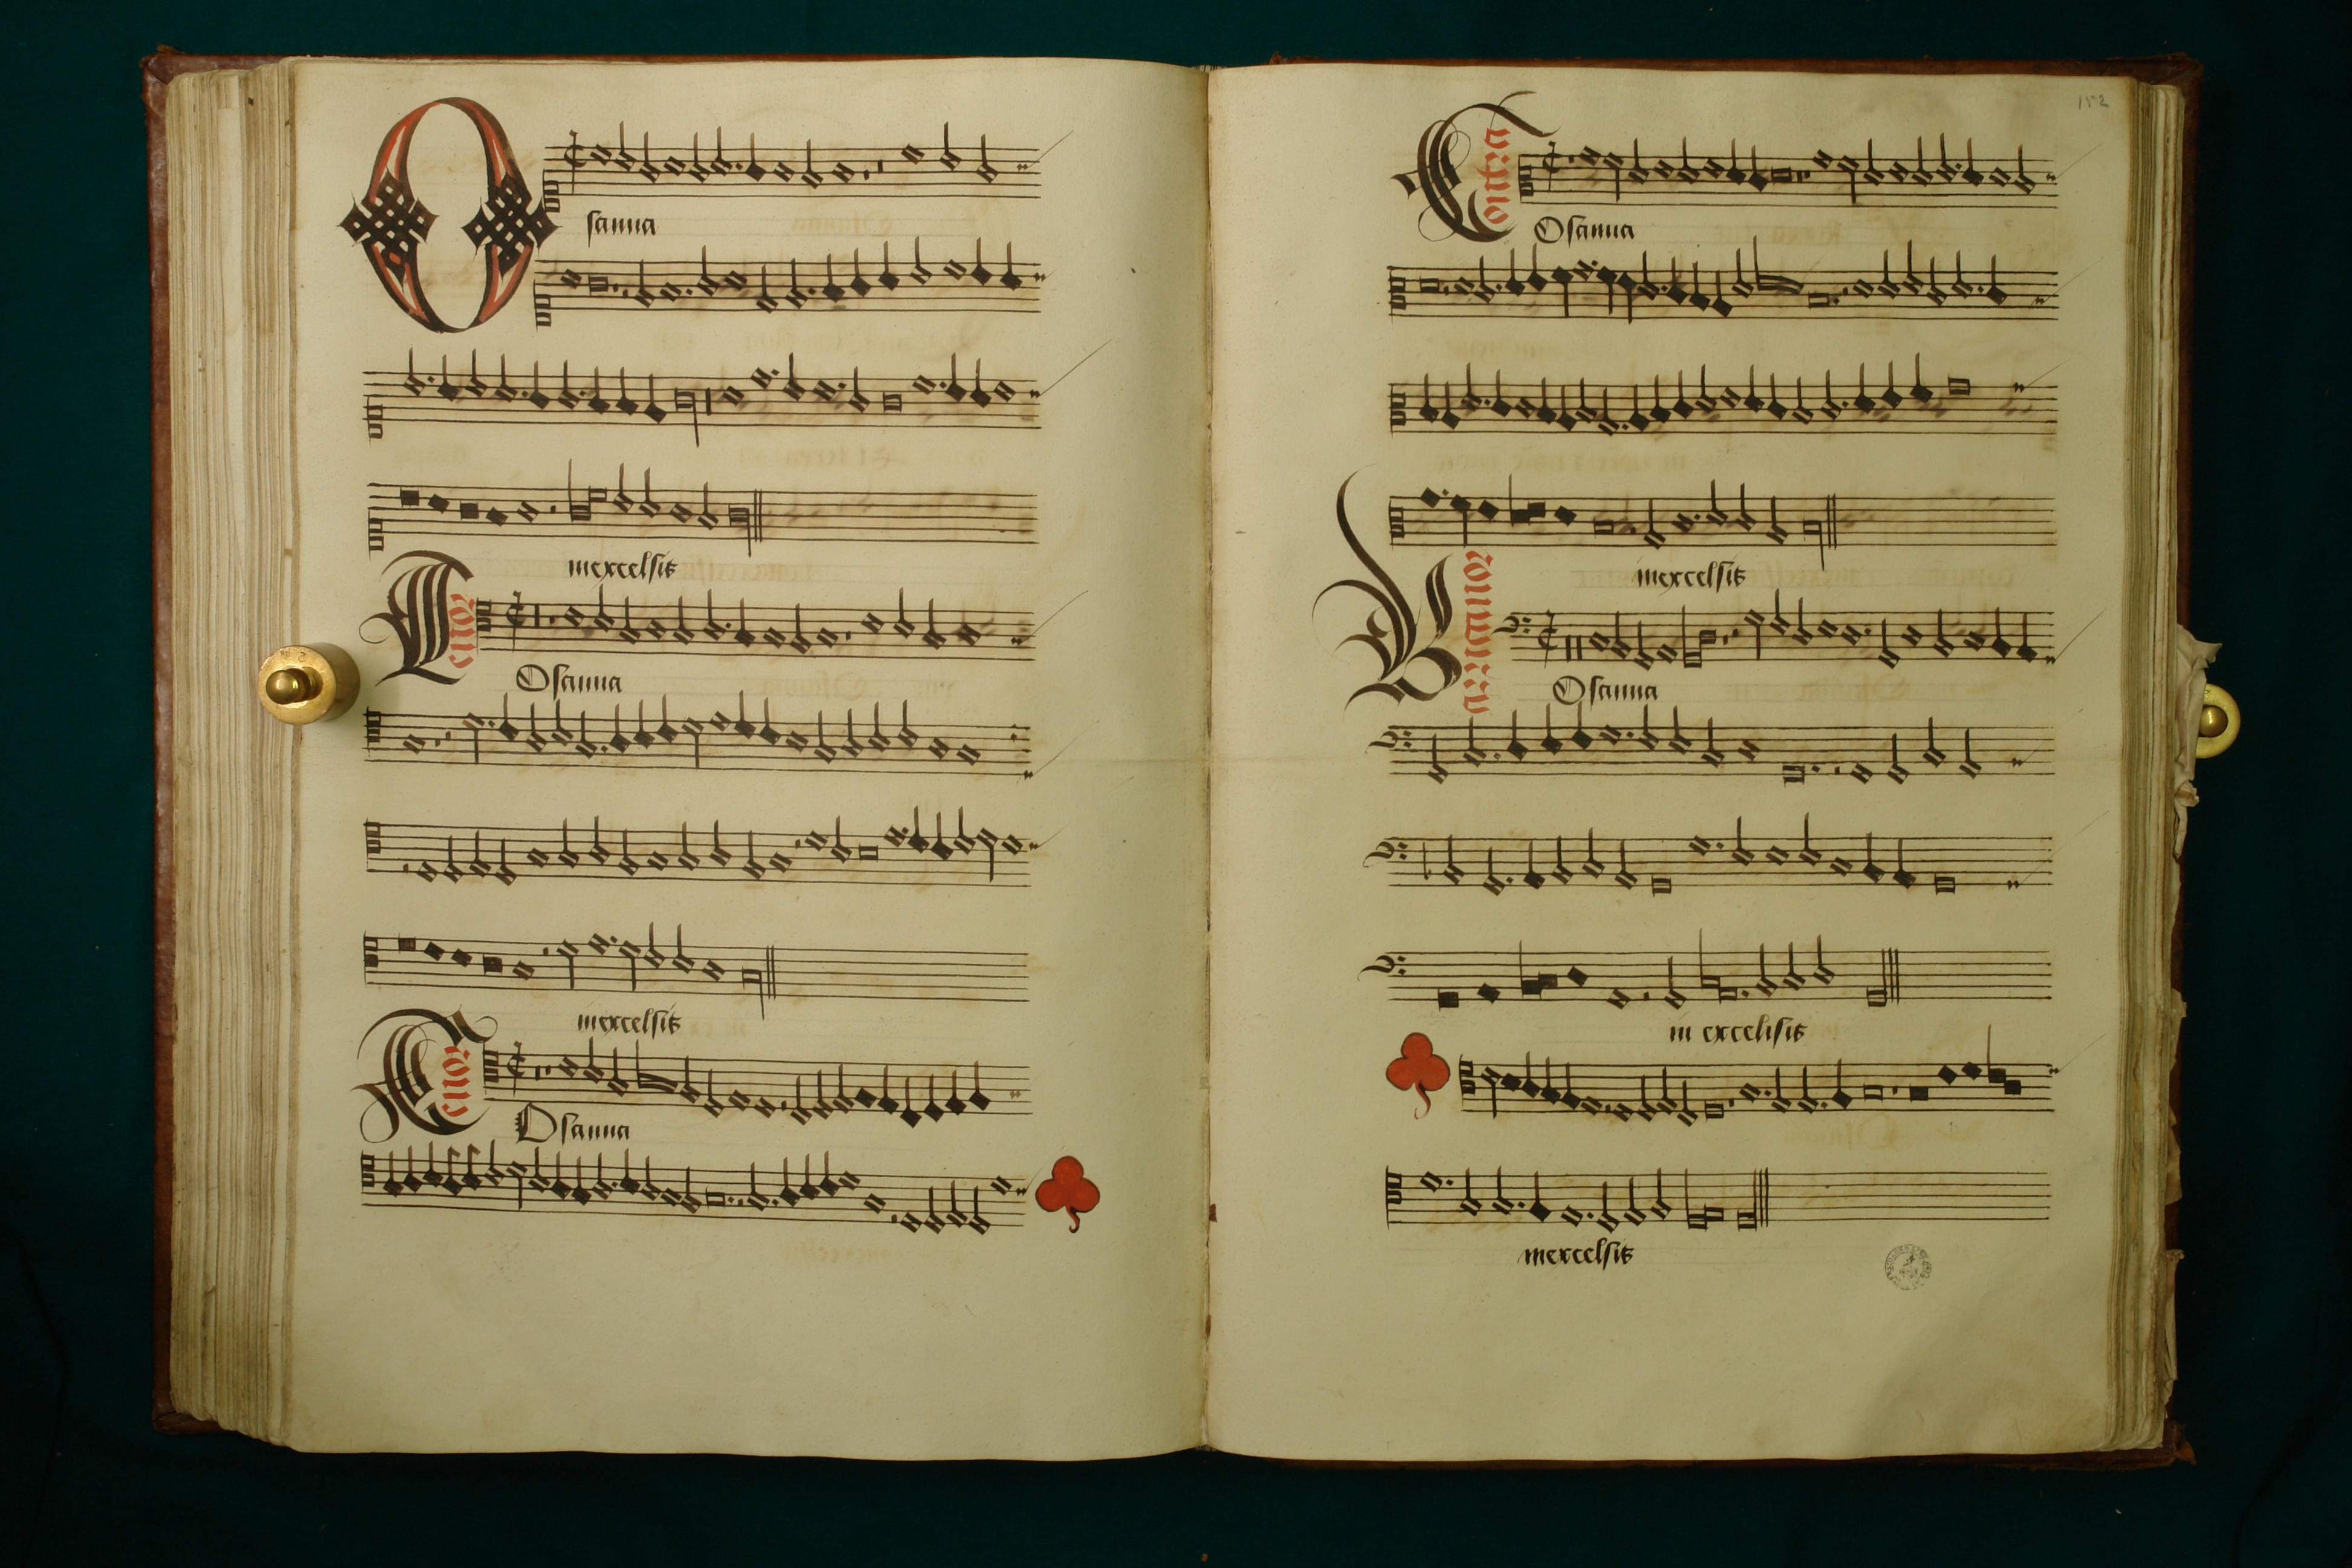 Osanna
inexcelsis
Tenor
Osanna
inexcelsis
Tenor
Osanna
152
Contra
Osanna
inexcelsis
Barranor
Osanna
in excelisis
inexcelsis